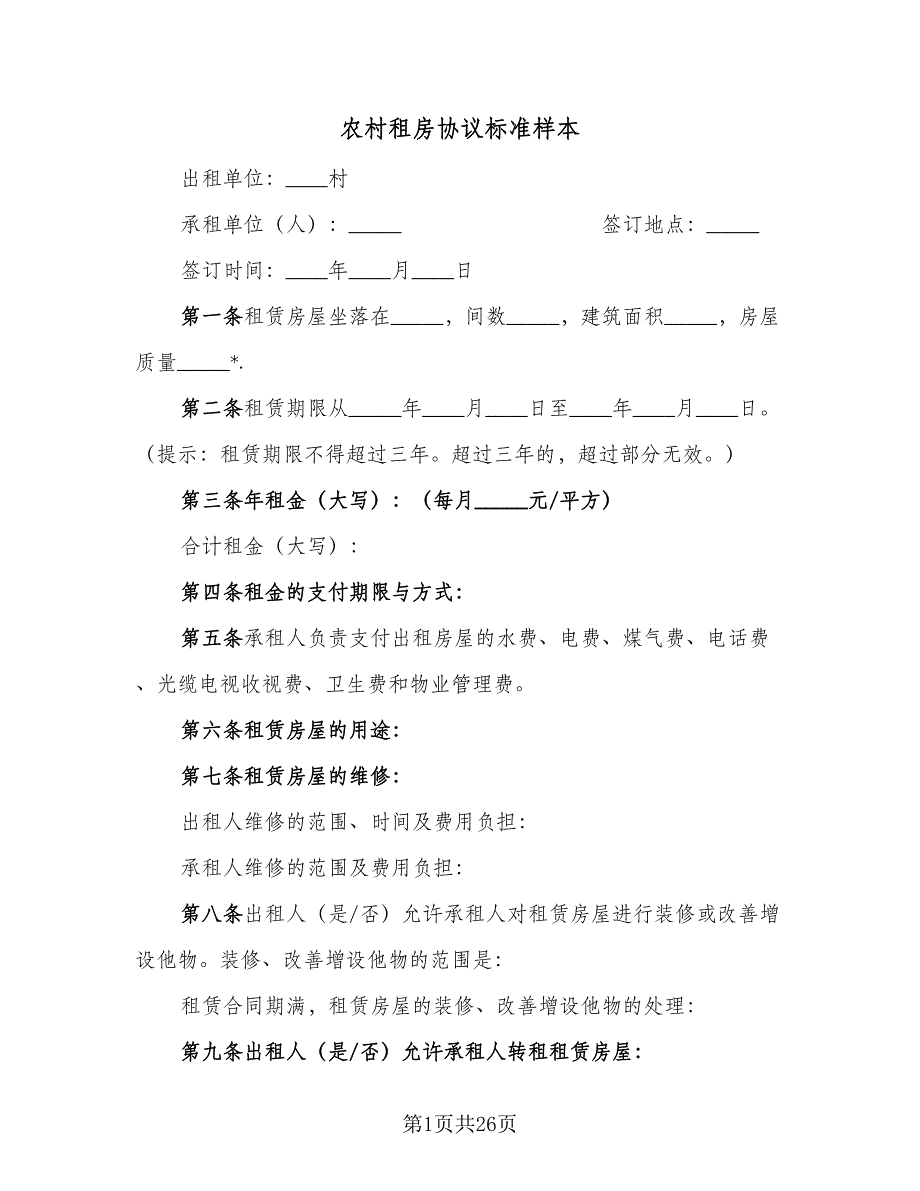 农村租房协议标准样本
出租单位：____村
承租单位（人）：_____ 签订地点：_____
签订时间：____年____月____日
第一条租赁房屋坐落在_____，间数_____，建筑面积_____，房屋
质量_____*.
第二条租赁期限从_____年____月____日至____年____月____日。
（提示：租赁期限不得超过三年。超过三年的，超过部分无效。）
第三条年租金（大写）：（每月_____元/平方）
合计租金（大写）：
第四条租金的支付期限与方式：
第五条承租人负责支付出租房屋的水费、电费、煤气费、电话费
、光缆电视收视费、卫生费和物业管理费。
第六条租赁房屋的用途：
第七条租赁房屋的维修：
出租人维修的范围、时间及费用负担：
承租人维修的范围及费用负担：
第八条出租人（是/否）允许承租人对租赁房屋进行装修或改善增
设他物。装修、改善增设他物的范围是：
租赁合同期满，租赁房屋的装修、改善增设他物的处理：
第九条出租人（是/否）允许承租人转租租赁房屋：
第1页共26页